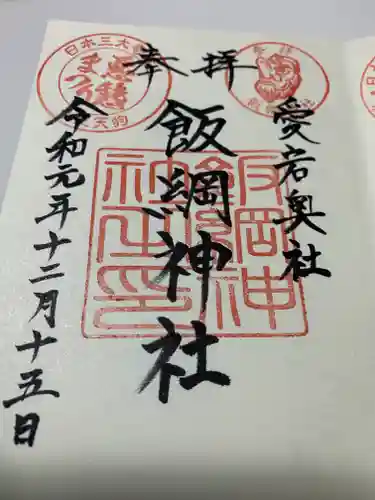 奉拝
愛宕奥社
飯綱神社
令和元年十二月十五日
日本三大
天狗
飯綱神社之印